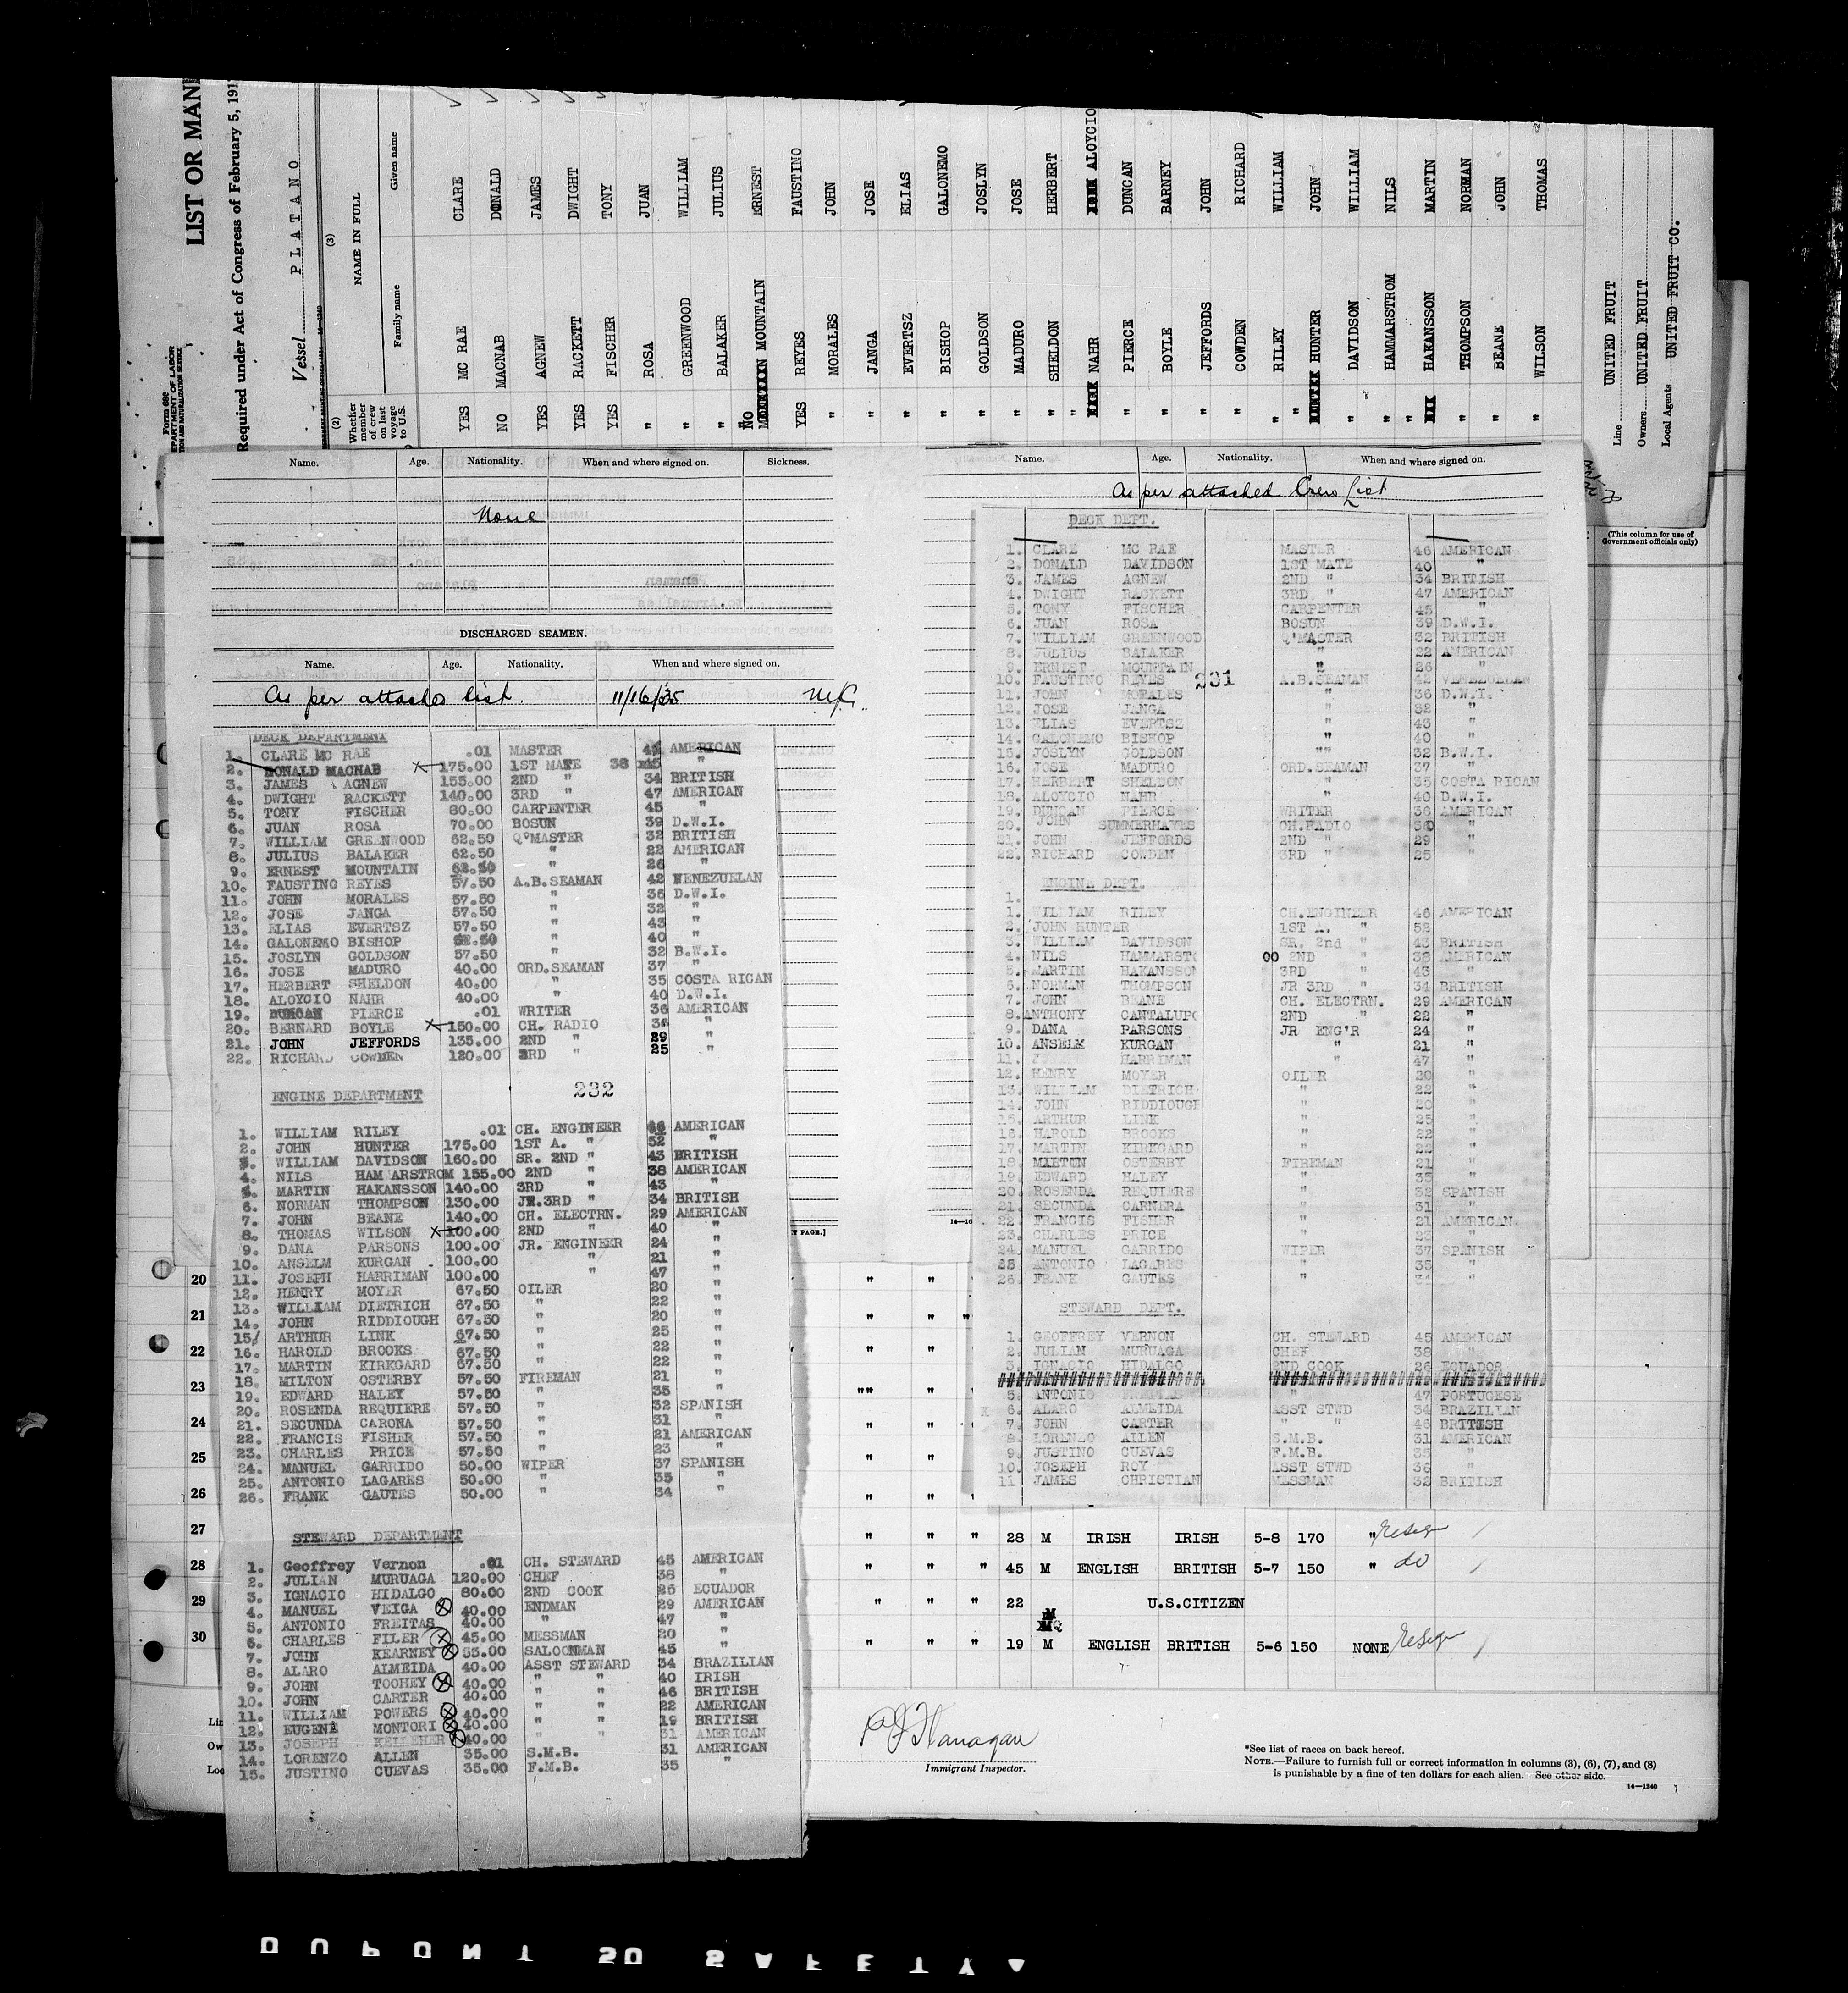 Form 680
LIST OR MANI
Required under Act of Congress of February 5, 191
Vessel PLATANO
(2) Whether member of crew on last voyage to U.S.
(3) NAME IN FULL
Family name Given name
YES MC RAE CLARE
NO MACNAB DONALD
YES AGNEW JAMES
YES RACKETT DWIGHT
YES FISCHER TONY
" ROSA JUAN
" GREENWOOD WILLIAM
" BALAKER JULIUS
NO MOUNTAIN ERNEST
YES REYES FAUSTINO
" MORALES JOHN
" JANGA JOSE
" EVERTSZ ELIAS
" BISHOP GALONEMO
" GOLDSON JOSLYN
" MADURO JOSE
" SHELDON HERBERT
" NAHR ALOYCIO
" PIERCE DUNCAN
" BOYLE BARNEY
" JEFFORDS JOHN
" COWDEN RICHARD
" RILEY WILLIAM
" HUNTER JOHN
" DAVIDSON WILLIAM
" HAMMARSTROM NILS
" HAKANSSON MARTIN
" THOMPSON NORMAN
" BEANE JOHN
" WILSON THOMAS
Line UNITED FRUIT
Owners UNITED FRUIT
Local Agents UNITED FRUIT CO.
(This column for use of Government officials only)
Name. Age. Nationality. When and where signed on. Sickness.
None
DISCHARGED SEAMEN.
Name. Age. Nationality. When and where signed on.
As per attached list. 11/16/35
DECK DEPARTMENT
1. CLARE MC RAE .01 MASTER AMERICAN
2. DONALD MACNAB 175.00 1ST MATE 38 "
3. JAMES AGNEW 155.00 2ND " 34 BRITISH
4. DWIGHT RACKETT 140.00 3RD " 47 AMERICAN
5. TONY FISCHER 80.00 CARPENTER 45 "
6. JUAN ROSA 70.00 BOSUN 39 D.W.I.
7. WILLIAM GREENWOOD 62.50 Q'MASTER 32 BRITISH
8. JULIUS BALAKER 62.50 " 22 AMERICAN
9. ERNEST MOUNTAIN 62.50 " 26 "
10. FAUSTINO REYES 57.50 A.B.SEAMAN 42 VENEZUELAN
11. JOHN MORALES 57.50 " 36 D.W.I.
12. JOSE JANGA 57.50 " 32 "
13. ELIAS EVERTSZ 57.50 " 43 "
14. GALONEMO BISHOP " 40 "
15. JOSLYN GOLDSON 57.50 " 32 B.W.I.
16. JOSE MADURO 40.00 ORD.SEAMAN 37 "
17. HERBERT SHELDON 40.00 " 35 COSTA RICAN
18. ALOYCIO NAHR 40.00 " 40 D.W.I.
19. DUNCAN PIERCE .01 WRITER 36 AMERICAN
20. BERNARD BOYLE 150.00 CH. RADIO 36 "
21. JOHN JEFFORDS 135.00 2ND " 29 "
22. RICHARD COWDEN 120.00 3RD " 25 "
ENGINE DEPARTMENT 232
1. WILLIAM RILEY .01 CH. ENGINEER 46 AMERICAN
2. JOHN HUNTER 175.00 1ST A. " 52 "
3. WILLIAM DAVIDSON 160.00 SR. 2ND " 43 BRITISH
4. NILS HAM ARSTROM 155.00 2ND " 38 AMERICAN
5. MARTIN HAKANSSON 140.00 3RD " 43 "
6. NORMAN THOMPSON 130.00 JR.3RD " 34 BRITISH
7. JOHN BEANE 140.00 CH. ELECTRN. 29 AMERICAN
8. THOMAS WILSON 100.00 2ND " 40 "
9. DANA PARSONS 100.00 JR. ENGINEER 24 "
10. ANSELM KURGAN 100.00 " 21 "
11. JOSEPH HARRIMAN 100.00 " 47 "
12. HENRY MOYER 67.50 OILER 20 "
13. WILLIAM DIETRICH 67.50 " 22 "
14. JOHN RIDDIOUGH 67.50 " 20 "
15/ ARTHUR LINK 67.50 " 25 "
16. HAROLD BROOKS 67.50 " 22 "
17. MARTIN KIRKGARD 67.50 " 22 "
18. MILTON OSTERBY 57.50 FIREMAN 21 "
19. EDWARD HALEY 57.50 " 35 "
20. ROSENDA REQUIERE 57.50 " 32 SPANISH
21. SECUNDA CARONA 57.50 " 31 "
22. FRANCIS FISHER 57.50 " 21 AMERICAN
23. CHARLES PRICE 57.50 " 23 "
24. MANUEL GARRIDO 50.00 WIPER 37 SPANISH
25. ANTONIO LAGARES 50.00 " 35 "
26. FRANK GAUTES 50.00 " 34 "
STEWARD DEPARTMENT
1. Geoffrey Vernon .01 CH. STEWARD 45 AMERICAN
2. JULIAN MURUAGA 120.00 CHEF 38 "
3. IGNACIO HIDALGO 80.00 2ND COOK 26 ECUADOR
4. MANUEL VEIGA 40.00 ENDMAN 29 AMERICAN
5. ANTONIO FREITAS 40.00 " 47 "
6. CHARLES FILER 45.00 MESSMAN 20 "
7. JOHN KEARNEY 55.00 SALOONMAN 45 "
8. ALARO ALMEIDA 40.00 ASST STEWARD 34 BRAZILIAN
9. JOHN TOOHEY 40.00 " " 40 IRISH
10. JOHN CARTER 40.00 " " 46 BRITISH
11. WILLIAM POWERS 40.00 " " 22 AMERICAN
12. EUGENE MONTORI 40.00 " " 19 BRITISH
13. JOSEPH KELLEHER 40.00 " " 31 AMERICAN
14. LORENZO ALLEN 35.00 S.M.B. 31 AMERICAN
15. JUSTINO CUEVAS 35.00 F.M.B. 35 "
Name. Age. Nationality. When and where signed on.
As per attached Crew List.
DECK DEPT.
1. CLARE MC RAE MASTER 46 AMERICAN
2. DONALD DAVIDSON 1ST MATE 40 "
3. JAMES AGNEW 2ND " 34 BRITISH
4. DWIGHT RACKETT 3RD " 47 AMERICAN
5. TONY FISCHER CARPENTER 45 "
6. JUAN ROSA BOSUN 39 D.W.I.
7. WILLIAM GREENWOOD Q'MASTER 32 BRITISH
8. JULIUS BALAKER " 22 AMERICAN
9. ERNEST MOUNTAIN " 26 "
10. FAUSTINO REYES 231 A.B.SEAMAN 42 VENEZUELAN
11. JOHN MORALES " 36 D.W.I.
12. JOSE JANGA " 32 "
13. ELIAS EVERTSZ " 43 "
14. GALONEMO BISHOP " 40 "
15. JOSLYN GOLDSON "" 32 B.W.I.
16. JOSE MADURO ORD.SEAMAN 37 "
17. HERBERT SHELDON " 35 COSTA RICAN
18. ALOYCIO NAHR " 40 D.W.I.
19. DUNCAN PIERCE WRITER 36 AMERICAN
20. JOHN SUMMERHAYES CH.RADIO "
21. JOHN JEFFORDS 2ND " 29 "
22. RICHARD COWDEN 3RD " 25 "
ENGINE DEPT.
1.
1. WILLIAM RILEY CH.ENGINEER 46 AMERICAN
2. JOHN HUNTER 1ST A. " 52
3. WILLIAM DAVIDSON SR. 2nd " 43 BRITISH
4. NILS HAMMARST 00 2ND " 38 AMERICAN
5. MARTIN HAKANSSON 3RD " 43 "
6. NORMAN THOMPSON JR 3RD " 34 BRITISH
7. JOHN BEANE CH. ELECTRN. 29 AMERICAN
8. ANTHONY CANTALUPO 2ND " 22 "
9. DANA PARSONS JR ENG'R 24 "
10. ANSELM KURGAN " 21 "
11. HARRIMAN " 47 "
12. HENRY MOYER OILER 20 "
13. WILLIAM DIETRICH " 22 "
14. JOHN RIDDIOUGH " 20 "
15. ARTHUR LINK " 25 "
16. HAROLD BROOKS " 22 "
17. MARTIN KIRKGARD " 22 "
18. OSTERBY FIREMAN 21 "
19. EDWARD HALEY " 35 "
20. ROSENDA REQUIERE " 32 SPANISH
21. SECUNDA CARNERA " 31 "
22. FRANCIS FISHER " 21 AMERICAN
23. CHARLES PRICE " 23 "
24. MANUEL GARRIDO WIPER 37 SPANISH
25. ANTONIO LAGARES " 35 "
26. FRANK GAUTES " 34 "
STEWARD DEPT.
1. GEOFFREY VERNON CH. STEWARD 45 AMERICAN
2. JULIAN MURUAGA CHEF 38 "
3. IGNACIO HIDALGO 2ND COOK 26 ECUADOR
5. ANTONIO FREITAS " 47 PORTUGESE
6. ALARO ALMEIDA ASST STWD 34 BRAZILIAN
7. JOHN CARTER " " 46 BRITISH
8. LORENZO ALLEN S.M.B. 31 AMERICAN
9. JUSTINO CUEVAS F.M.B. 35 "
10. JOSEPH ROY ASST STWD 36 "
11. JAMES CHRISTIAN MESSMAN 32 BRITISH
20 " "
21 " " "
22 " "
23 "" "
24 " "
25 " "
26 " "
27 " " " 28 M IRISH IRISH 5-8 170 "
28 " " " 45 M ENGLISH BRITISH 5-7 150 " do
29 " " " 22 U.S.CITIZEN
30 " " " 19 M ENGLISH BRITISH 5-6 150 NONE
PJ Flanagan
Immigrant Inspector.
*See list of races on back hereof.
NOTE.—Failure to furnish full or correct information in columns (3), (6), (7), and (8)
is punishable by a fine of ten dollars for each alien. See other side.
14—1240
DUPONT SAFETY